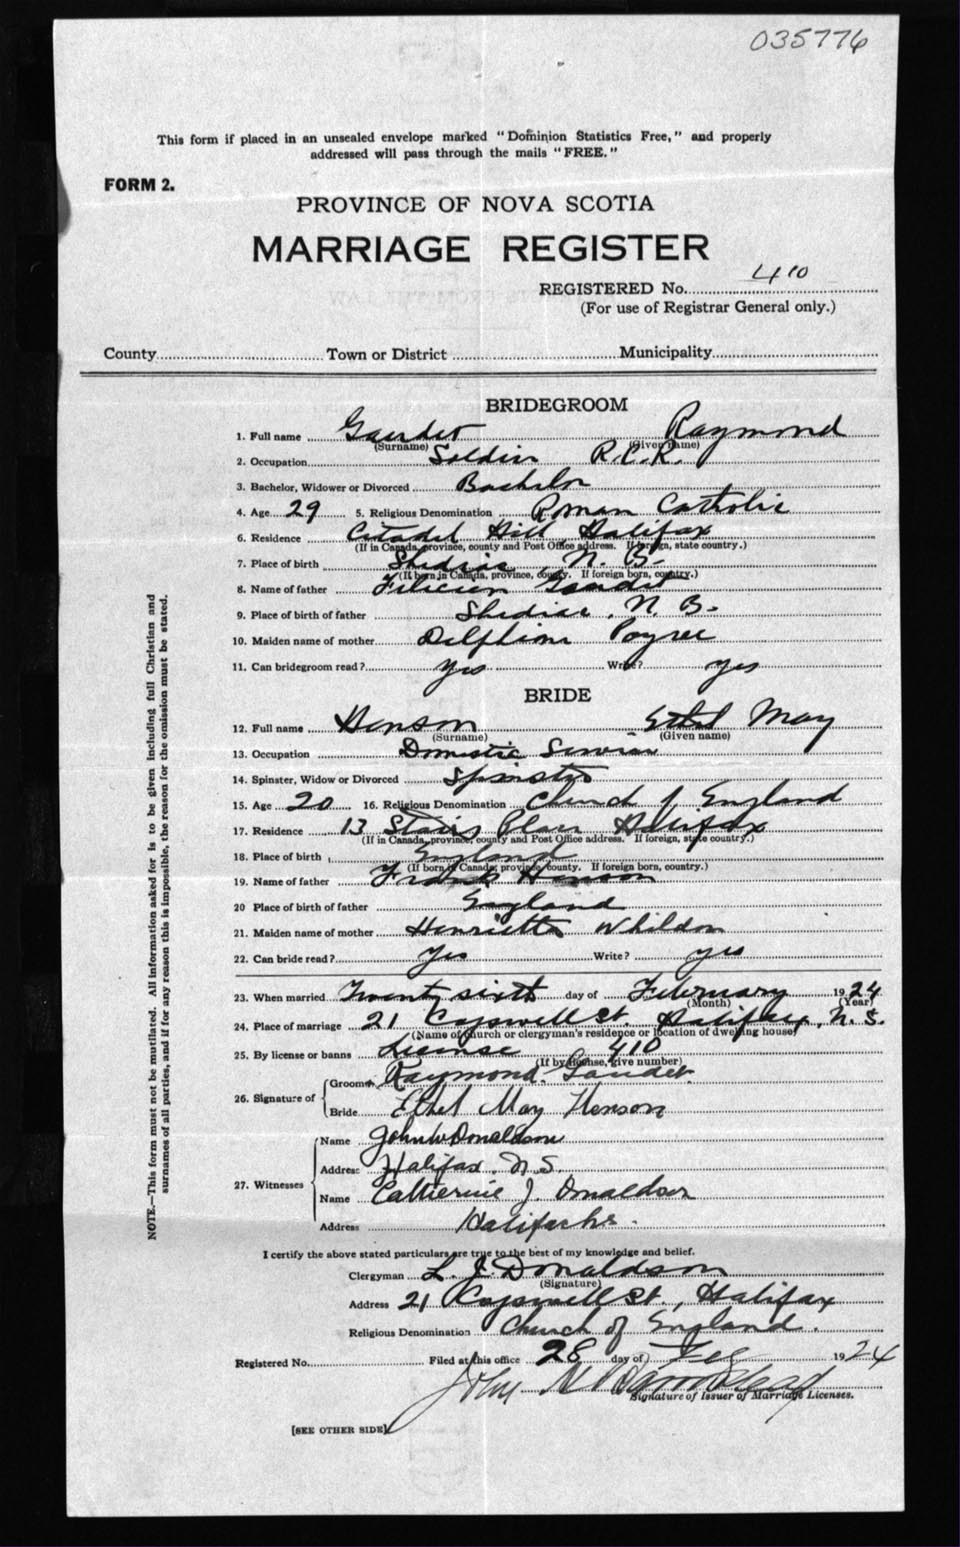 035776
This form if placed in an unsealed envelope marked "Dominion Statistics Free," and properly
addressed will pass through the mails "FREE."
FORM 2.
PROVINCE OF NOVA SCOTIA
MARRIAGE REGISTER
REGISTERED No. 410
(For use of Registrar General only.)
County Town or District Municipality
BRIDEGROOM
1. Full name Gaudet Raymond
(Surname) (Given name)
2. Occupation Soldier R.C.R.
3. Bachelor, Widower or Divorced Bachelor
4. Age 29 5. Religious Denomination Roman Catholic
6. Residence Citadel Hill Halifax
(If in Canada, province, county and Post Office address. If foreign, state country.)
7. Place of birth Shediac, N. B.
(If born in Canada, province, county. If foreign born, country.)
8. Name of father Gaudet
9. Place of birth of father Shediac, N. B.
10. Maiden name of mother
11. Can bridegroom read? Yes Write? yes
BRIDE
12. Full name Henson Ethel May
(Surname) (Given name)
13. Occupation Domestic Service
14. Spinster, Widow or Divorced Spinster
15. Age 20 16. Religious Denomination Church of England
17. Residence 13 Stairs Place Halifax
(If in Canada, province, county and Post Office address. If foreign, state country.)
18. Place of birth England
(If born in Canada, province, county. If foreign born, country.)
19. Name of father Frank Henson
20 Place of birth of father England
21. Maiden name of mother Henrietta Whildon
22. Can bride read? Yes Write? yes
23. When married Twenty sixth day of February 1924
(Month) (Year)
24. Place of marriage 21 Cogswell St. Halifax, N. S.
(Name of church or clergyman's residence or location of dwelling house)
25. By license or banns License 410
(If by license, give number)
26. Signature of Groom Raymond Gaudet
Bride Ethel May Henson
27. Witnesses
Name John W Donaldson
Address Halifax. N.S.
Name Catherine J. Donaldson
Address Halifax N.S.
I certify the above stated particulars are true to the best of my knowledge and belief.
Clergyman L. J. Donaldson
(Signature)
Address 21 Cogswell St., Halifax
Religious Denomination Church of England.
Registered No. Filed at this office 28 day of Feb 1924
John
Signature of Issuer of Marriage Licenses.
[SEE OTHER SIDE]
NOTE.—This form must not be mutilated. All information asked for is to be given including full Christian and
surnames of all parties, and if for any reason this is impossible, the reason for the omission must be stated.